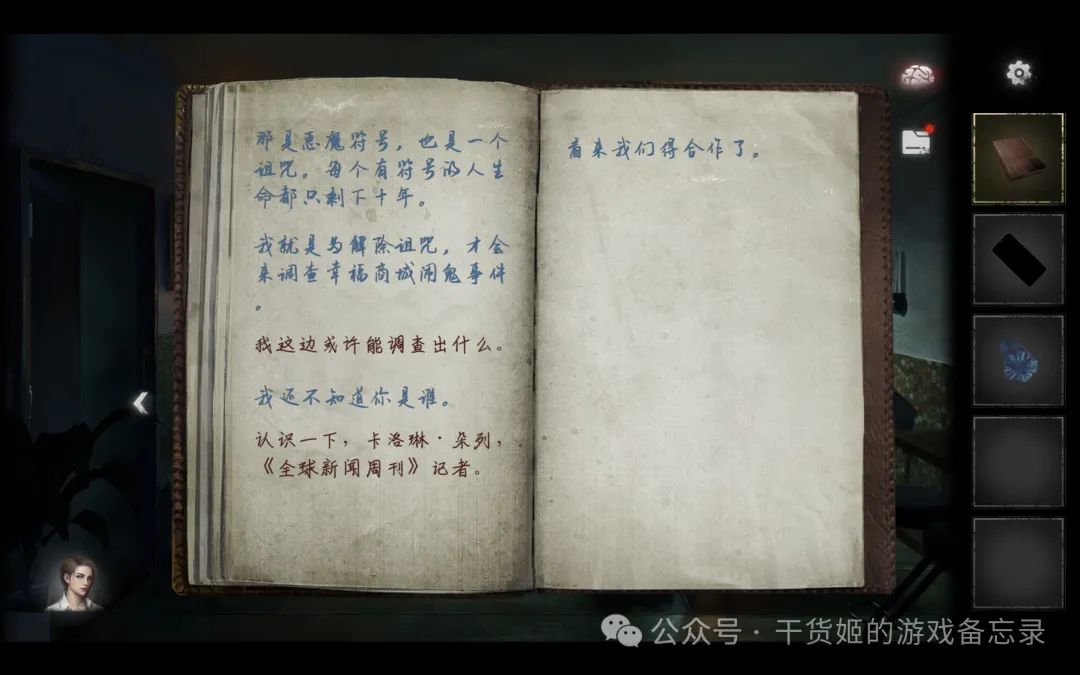 那是恶魔符号，也是一个
诅咒。每个有符号的人生
命都只剩下十年。
我就是为解除诅咒，才会
来调查幸福商城闹鬼事件
。
我这边或许能调查出什么。
我还不知道你是谁。
认识一下，卡洛琳·朵列，
《全球新闻周刊》记者。
看来我们得合作了。
公众号·干货姬的游戏备忘录